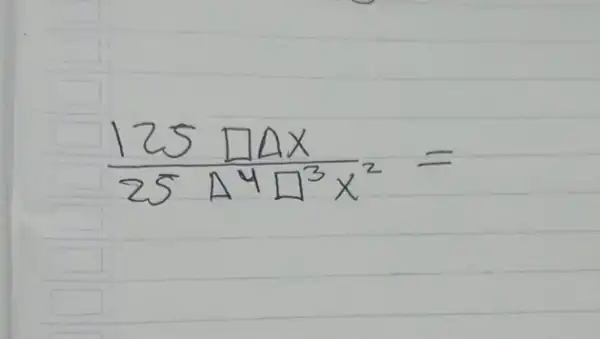 125 □△x
25 △⁴ □³ x² =